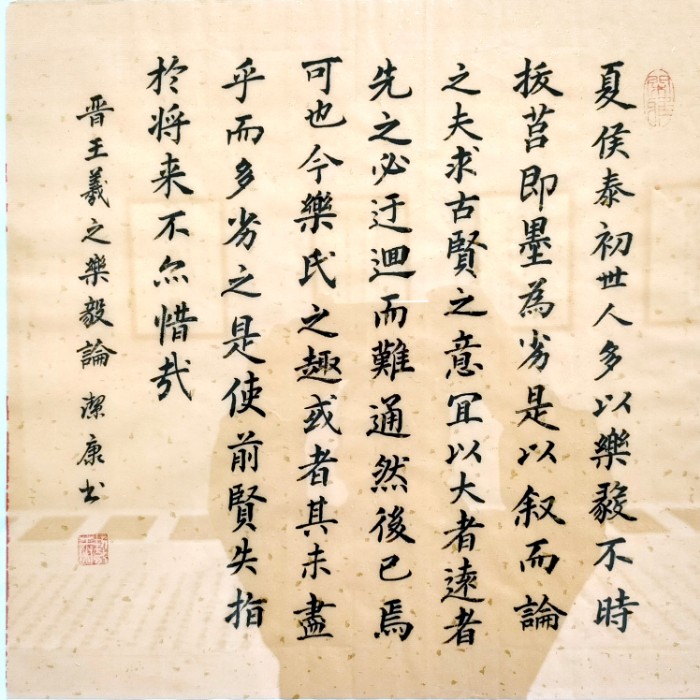 夏侯泰初世人多以樂毅不時
拔莒即墨為劣是以叙而論
之夫求古賢之意宜以大者遠者
先之必迂迴而難通然後已焉
可也今樂氏之趣或者其未盡
乎而多劣之是使前賢失指
於将来不亦惜哉
晋王羲之樂毅論 潔康书